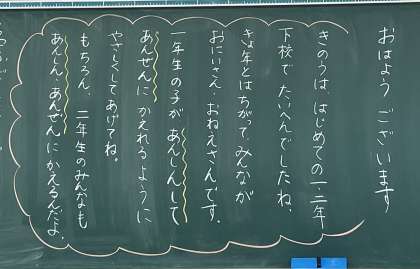 おはよう ございます
きのうは、はじめての 一・二年
下校で たいへんでしたね。
きょ年とはちがって、みんなが
おにいさん・おねえさんです。
一年生の子が あんしんして
あんぜんに かえれるように
やさしくしてあげてね。
もちろん、二年生のみんなも
あんしん・あんぜんに かえるんだよ。